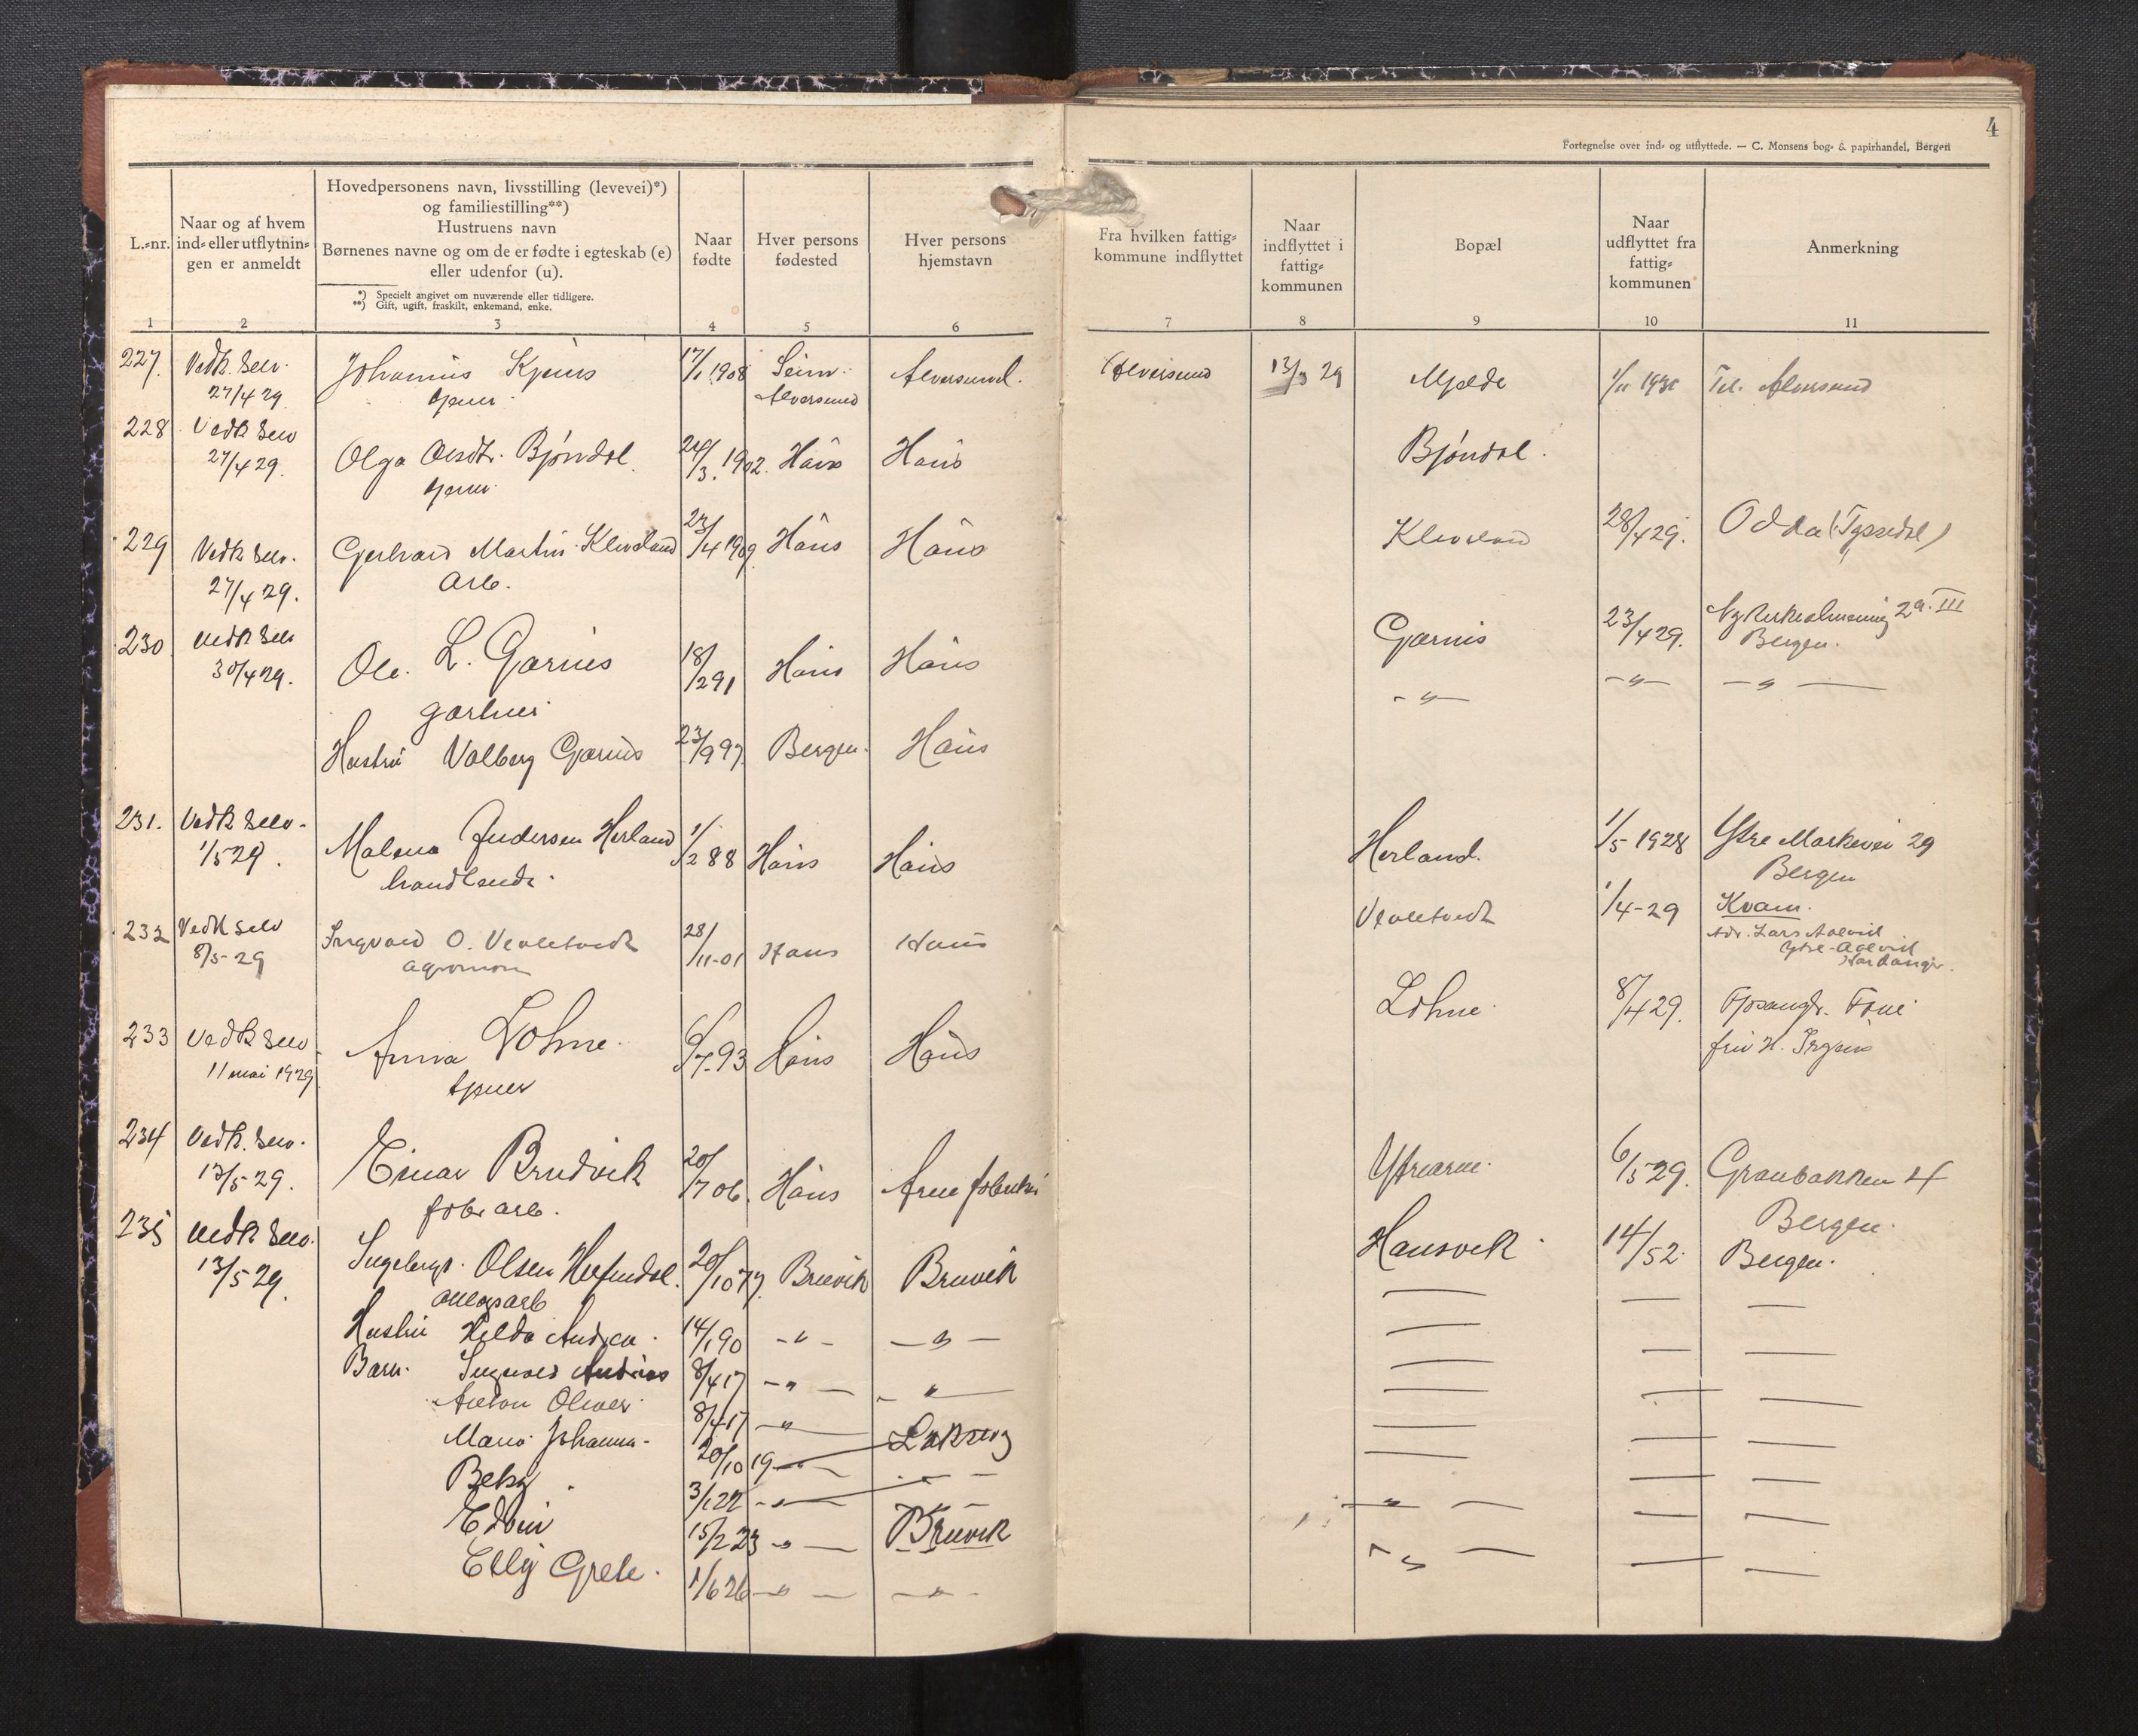 4
Fortegnelse over ind- og utflyttede. — C. Monsens bog- & papirhandel, Bergen
L.-nr.
Naar og af hvem
ind- eller utflytnin-
gen er anmeldt
Hovedpersonens navn, livsstilling (levevei)*)
og familiestilling**)
Hustruens navn
Børnenes navne og om de er fødte i egteskab (e)
eller udenfor (u).
*) Specielt angivet om nuværende eller tidligere.
**) Gift, ugift, fraskilt, enkemand, enke.
Naar
fødte
Hver persons
fødested
Hver persons
hjemstavn
Fra hvilken fattig-
kommune indflyttet
Naar
indflyttet i
fattig-
kommunen
Bopæl
Naar
udflyttet fra
fattig-
kommunen
Anmerkning
1 2 3 4 5 6 7 8 9 10 11
227. Vedk. selv. Johannes 17/1 1908 Seim. Alversund. Alversund 13/3 29 Mjelde Til. Alversund
27/4 29 tjener Alversund
228 Vedk selv Olga Bjøndal 24/3. 1902. Haus Haus Bjøndal.
27/4 29. tjener
229 Vedk selv. Gerhard Martin Kleveland 23/4 1909. Haus Haus Kleveland 28/4 29. Odda (Tyssedal)
27/4 29. Arb.
230 Vedk selv Ole. L. Garnes 18/2 91 Haus Haus Garnes 23/4 29. 2a. III
30/4 29. gartner Bergen.
- " - - " - - " -
Hustru Valborg Garnes 23/9 97 Bergen. Haus
231. Vedk selv - Malena Andersen Herland 1/2 88 Haus Haus Herland. 1/5 1928 Ytre Markevei 29
1/5 29. handlende. Bergen
232 Vedk selv Ingvald O. 28/11-01 Haus Haus 1/4-29 Kvam.
8/5-29 agronom Adr. Lars
Ytre-
Hardanger.
233 Vedk selv Anna Lohne. 6/7-93 Haus Haus Lohne 8/4 29.
11 mai 1929 tjener
234 Vedk. selv. Einar Brudvik 20/7 06. Haus Arne Ytrearne. 6/5 29. Graubakken 4
13/5-29. fabr arb. Bergen.
235 Vedk selv. Olsen 20/10 77. Bruvik Bruvik Hausvik 14/5 2. Bergen.
13/5 29. anlægsarb
Hustru Hilda Andrea. 14/1 90 - " - - " -
Barn. Ingvald Andreas 8/4 17 - " - - " -
Anton Oliver 8/4 17 - " -
Marie Johanna - 20/10 19 - " - Laksevåg
Betsy. 3/1 22 - " - - " -
Edvin 15/2 23 - " - Bruvik - " -
Elly Grete. 1/6 26 - " - - " - - " -